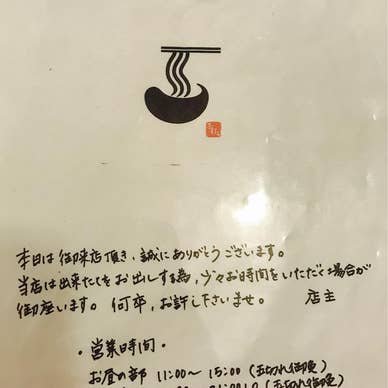 本日は御来店頂き、誠にありがとうございます。
当店は出来たてをお出しする為、少々お時間をいただく場合が
御座います。何卒、お許し下さいませ。 店主
・営業時間・
お昼の部 11:00〜15:00(玉切れ御免)